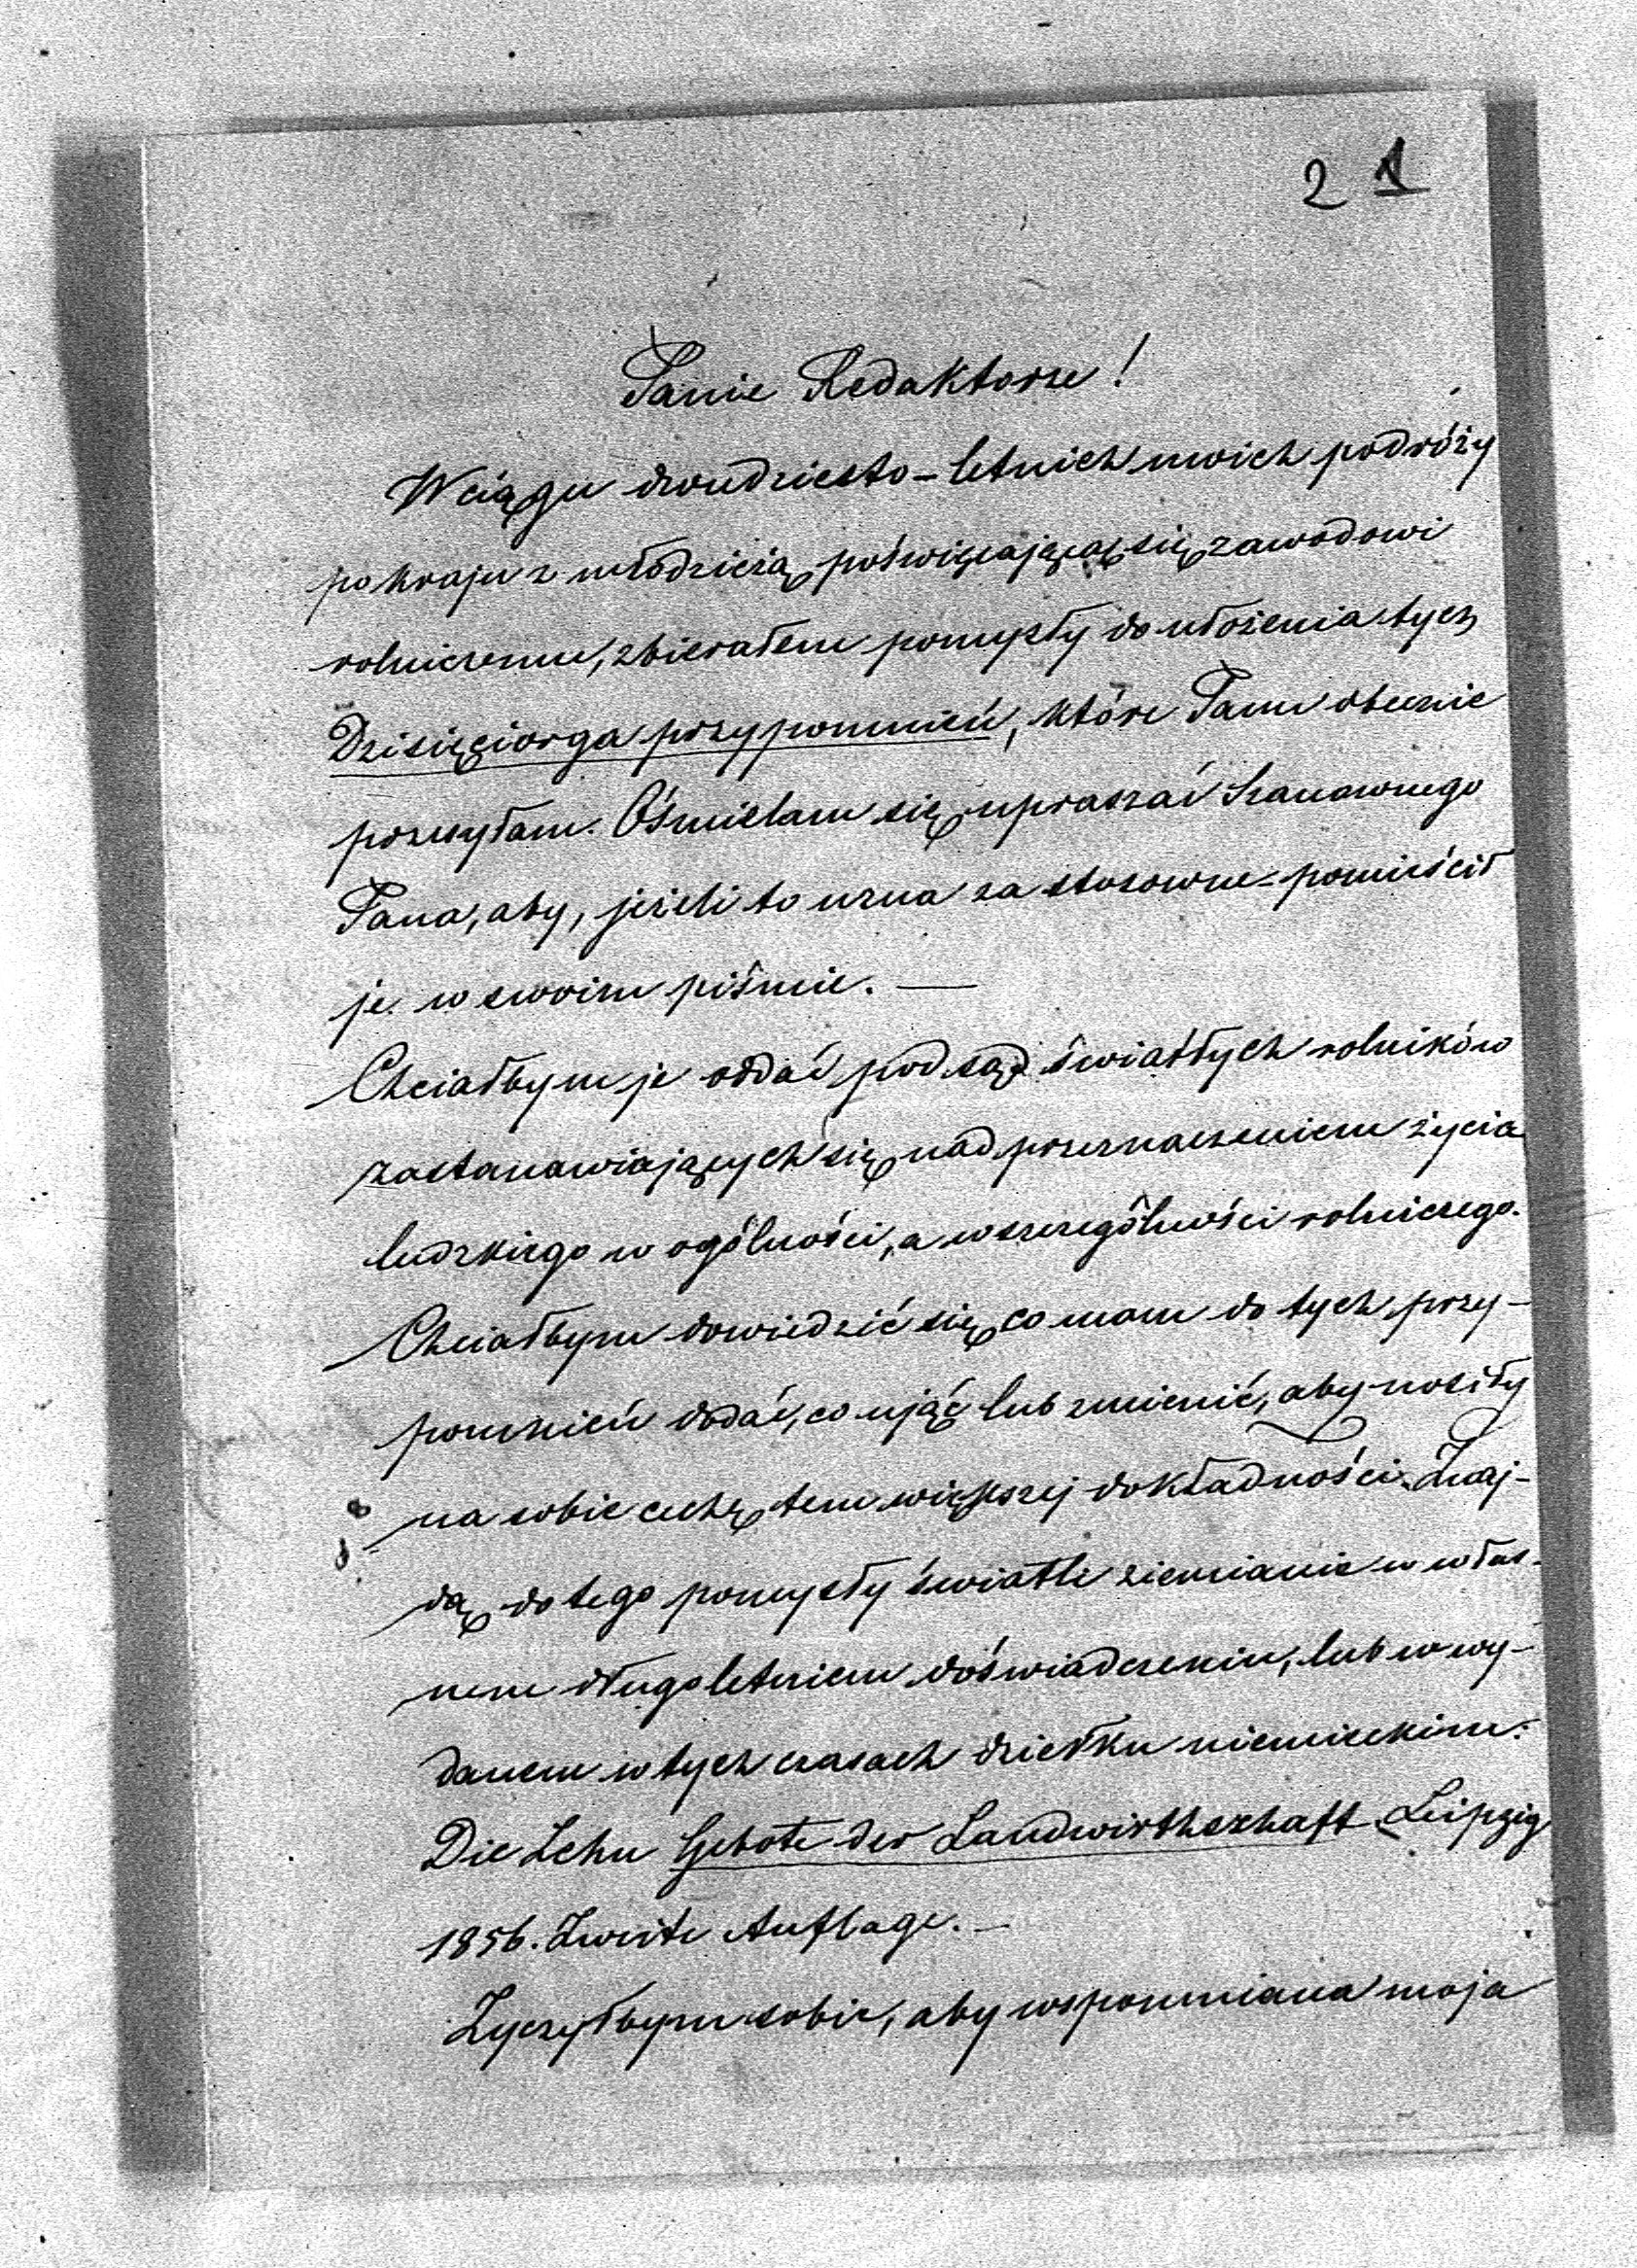 2 1
Panie Redaktorze!
W ciągu dwudziesto-letnich mwich podróży
po kraju z młodzieżą poświęcającą się zawodowi
rolniczemu, zbierałem pomysły do ułożenia tych
Dziesięciorga przypomnień, które Panu obecnie
przesyłam. Ośmielam się upraszać Szanownego
Pana, aby, jeżeli to uzna za stosowne - pomieścił
je w swoim piśmie. —
Chciałbym je oddać pod sąd światłych rolników
zastanawiających się nad przeznaczeniem życia
ludzkiego w ogólności, a w szczególności rolniczego.
Chciałbym dowiedzić się co mam do tych przy-
pomnień dodać, co ująć lub zmienić, aby nosiły
na sobie cechę tem większej dokładności. Znaj-
dą do tego pomysły światli ziemianie w włas-
nem długoletniem doświadczeniu, lub w wy-
danem w tych czasach dziełku niemieckim:
Die Zehn Gebote der Landwirthschaft. Leipzig
1856. Zweite Auflage. —
Życzyłbym sobie, aby wspomniana moja